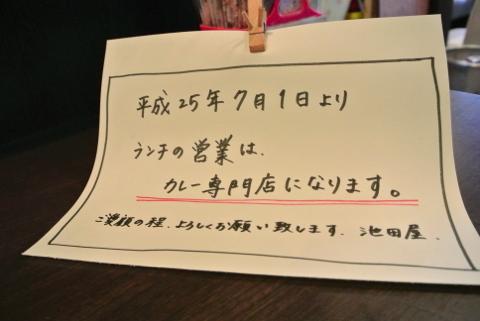 平成25年7月1日より
ランチの営業は、
カレー専門店になります。
ご愛顧の程、よろしくお願い致します、池田屋、